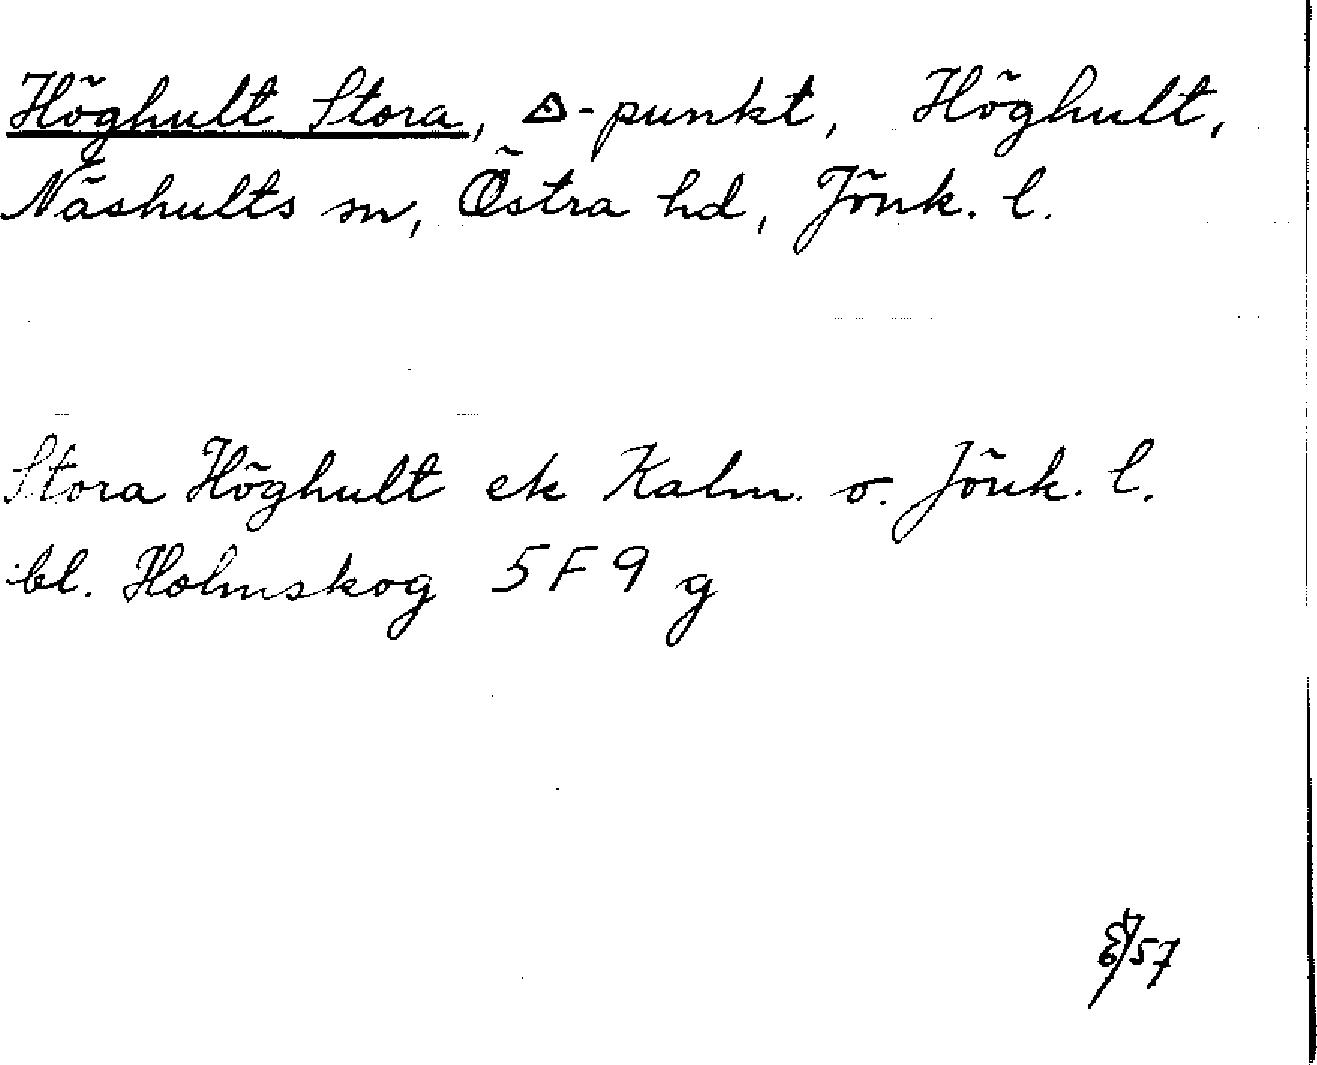 Höghult Stora, △-punkt, Höghult,
Näshults sn, Östra hd, Jönk. l.
Stora Höghult ek Kalm. o. Jönk. l.
bl. Holmskog 5F 9 g